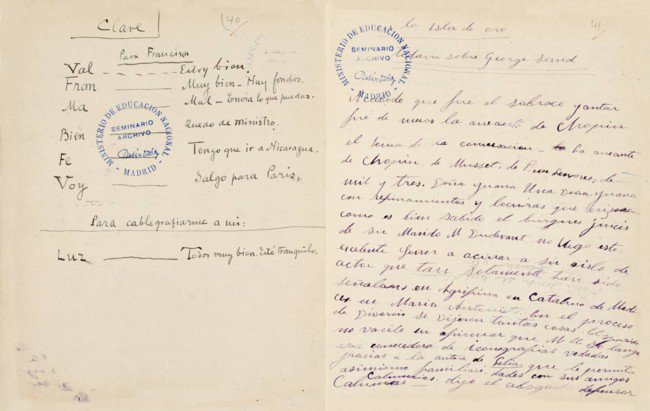 Clave
40
Para Francisca
Val - Estoy bien.
Fran - Muy bien. Hay fondos.
Ma - Mal - Envía lo que puedas.
Bien - Quedo de Ministro.
Fe - Tengo que ir a Nicaragua.
Voy - Salgo para París.
MINISTERIO DE EDUCACION NACIONAL
SEMINARIO
ARCHIVO
Rubén Darío
- MADRID -
Para cablegrafiarme a mi:
Luz - Todos muy bien. Esté tranquilo.
41
La Isla de oro
sobre George Sand
MINISTERIO DE EDUCACION NACIONAL
SEMINARIO
ARCHIVO
Rubén Darío
MADRID
que fue el sabroso yantar
fue de menos la amante de Chopin
el tema de la conversacion - la amante
de Chopin, de Musset, de de
mil y tres. Doña Juana Una Doña Juana
con refinamientos y locuras que
como es bien sabido el burgues juicio
de su Marido M Dudevant no llego este
excelente señor a acusar a su
actor que tan solamente han sido
señalados en Agripina en Catalina de
en Maria Antonieta En el proceso
de Divorcio se dijeron tantas cosas El
no vacilo en afirmar que M
era conocedora de iconografias vedadas
gracias a la autora de Lelia que le permitia
asimismo familiaridades con sus amigos
Calumnias dijo el abogado defensor